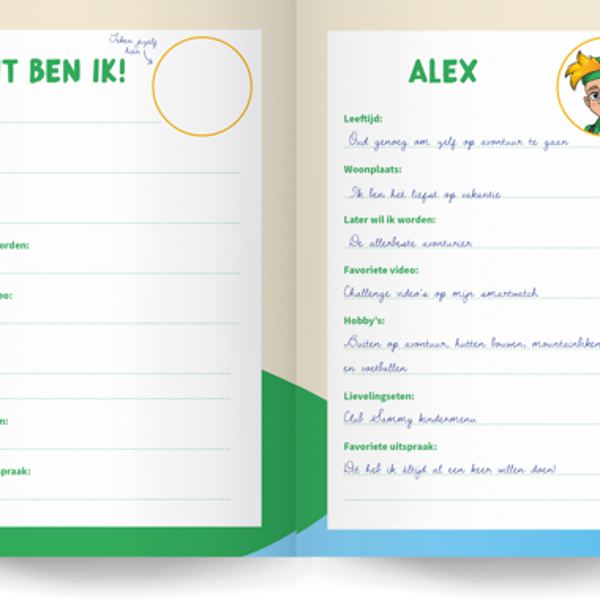 T BEN IK!
Teken jezelf
hier
orden:
eo:
n:
spraak:
ALEX
Leeftijd:
Oud genoeg om zelf op avontuur te gaan
Woonplaats:
Ik ben het liefst op vakantie
Later wil ik worden:
De allerbeste avonturier
Favoriete video:
Challenge video's op mijn smartwatch
Hobby's:
Buiten op avontuur, hutten bouwen, mountainbiken
en voetballen
Lievelingseten:
Club Sammy kindermenu
Favoriete uitspraak:
Dit heb ik altijd al een keer willen doen!